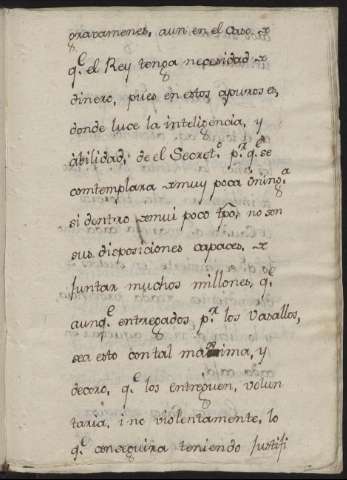 gravamenes, aun en el caso, de
q.^e el Rey tenga necesidad de
dinero, pues en estos apuros es,
donde luce la inteligencia, y
abilidad, de el Secret.^o p.^r q.^e se
comtemplara de muy poca ò ning.^a
si dentro de mui poco tpõ, no son
sus disposiciones capaces, de
juntar muchos millones, q.^e
aunq.^e entregados, p.^r los Vasallos,
sea esto con tal maxima, y
decoro, q.^e los entreguen, volun
taria, i no violentamente, lo
q.^e conseguira teniendo justifi